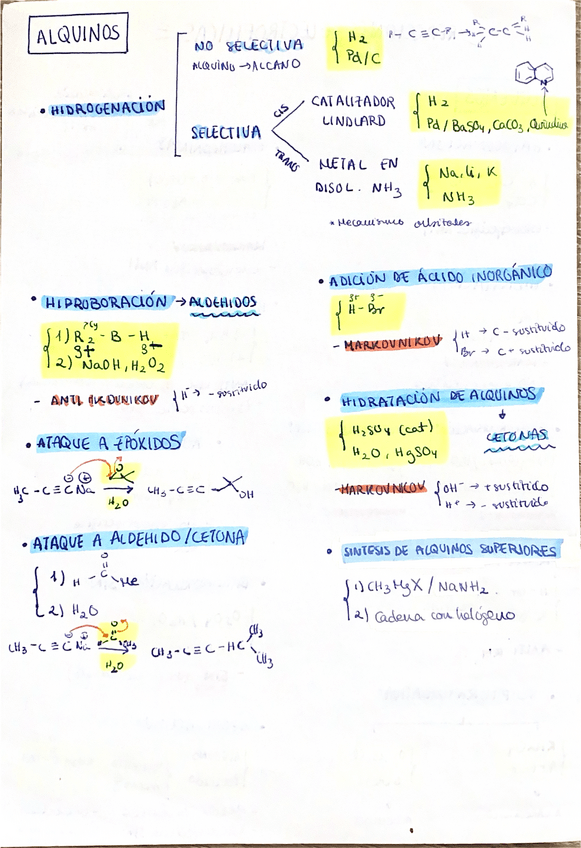 ALQUINOS
• HIDROGENACIÓN
NO SELECTIVA
ALQUINO → ALCANO
H2
Pd/C
R-C≡C-R
SELECTIVA
CIS
CATALIZADOR
LINDLARD
H2
Pd/BaSO4, CaCO3, Quinolina
N
TRANS
METAL EN
DISOL. NH3
Na, Li, K
NH3
*Mecanismo orbitales
• HIPROBORACIÓN → ALDEHIDOS
1) R2 - B - H
2) NaOH, H2O2
- ANTI MKOVNIKOV
H → - sustituido
• ATAQUE A EPÓXIDOS
H3C-C≡C Na
O
H2O
CH3-C≡C
OH
• ATAQUE A ALDEHIDO/CETONA
1) H-C-Me
O
2) H2O
CH3-C≡C Na
O
H2O
CH3-C≡C-HC
CH3
CH3
• ADICIÓN DE ÁCIDO INORGÁNICO
δ+ δ-
H-Br
- MARKOVNIKOV
H → C - sustituido
Br → C + sustituido
• HIDRATACIÓN DE ALQUINOS
↓
CETONAS
H2SO4 (cat)
H2O, HgSO4
- MARKOVNIKOV
OH- → + sustituido
H+ → - sustituido
• SINTESIS DE ALQUINOS SUPERIORES
1) CH3MgX / NaNH2.
2) Cadena con halógeno